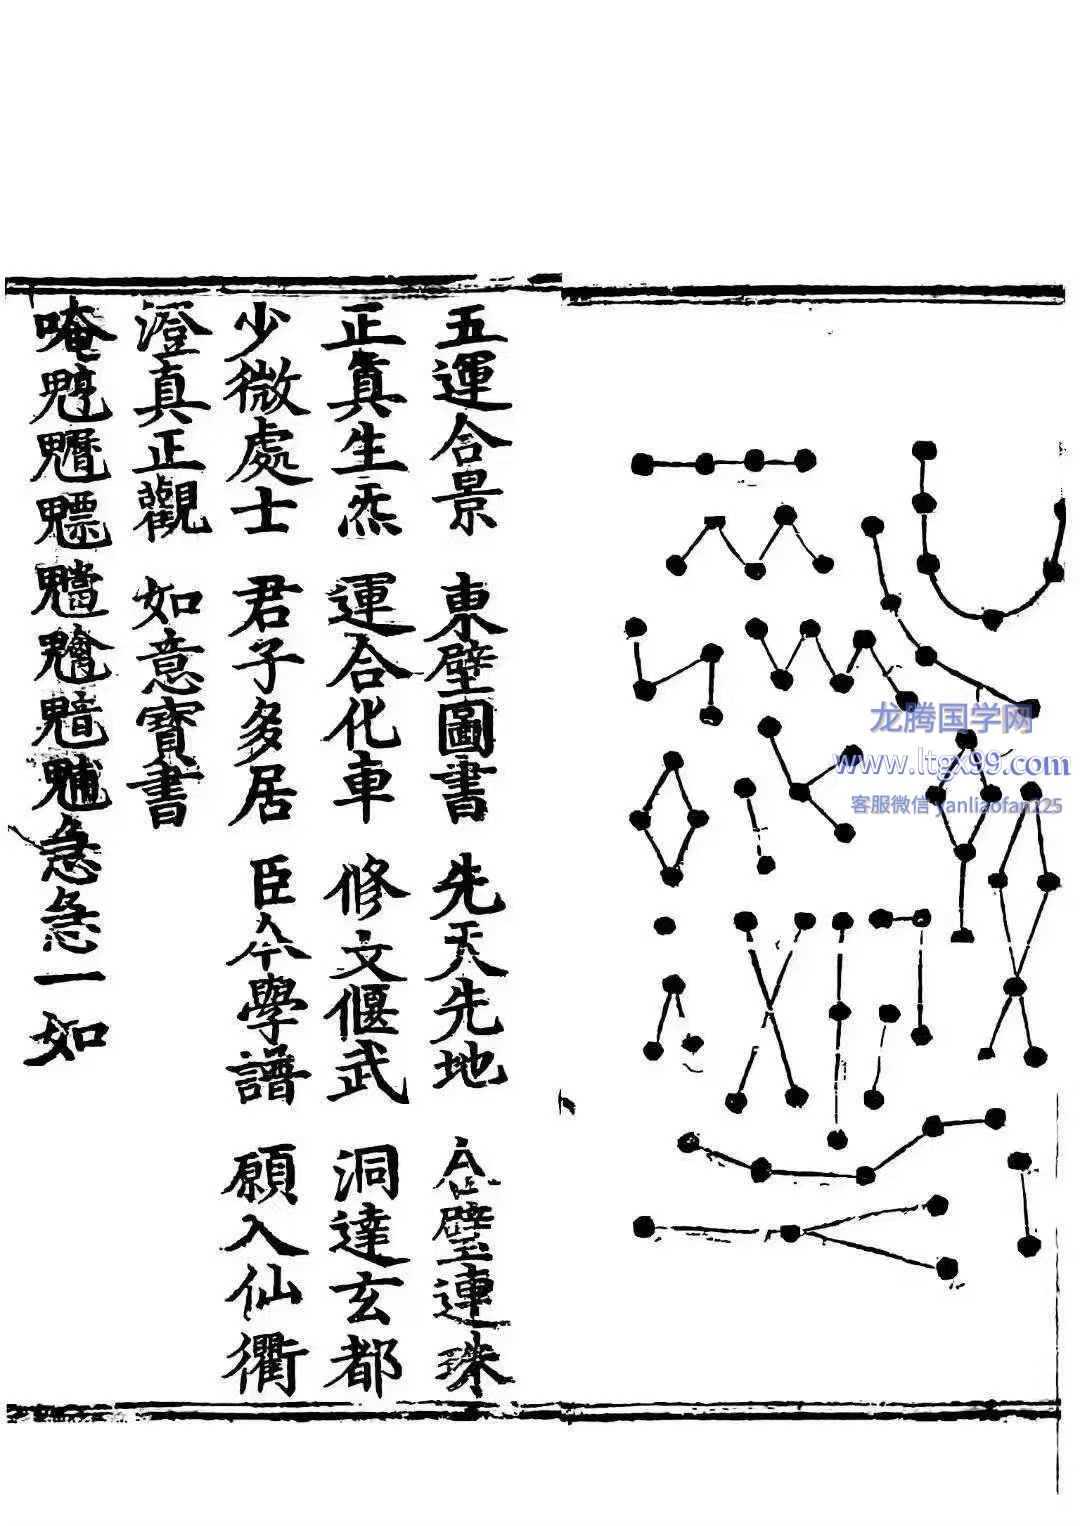 五運合景 東壁圖書 先天先地 合璧連珠
正眞生炁 運合化車 修文偃武 洞達玄都
少微處士 君子多居 臣今學譜 願入仙衢
澄真正觀 如意寶書
唵魒急急一如
龙腾国学网
www.ltgx99.com
客服微信 yanliaofan225